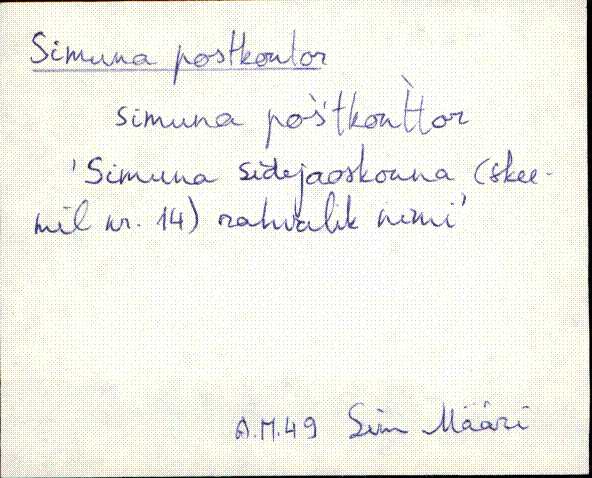 Simuna postkontor
simuna pos̀'tkont̀tor
'Simuna sidejaoskonna (skee-
mil nr. 14) rahvalik nimi'
A.M.49 Sim Määri